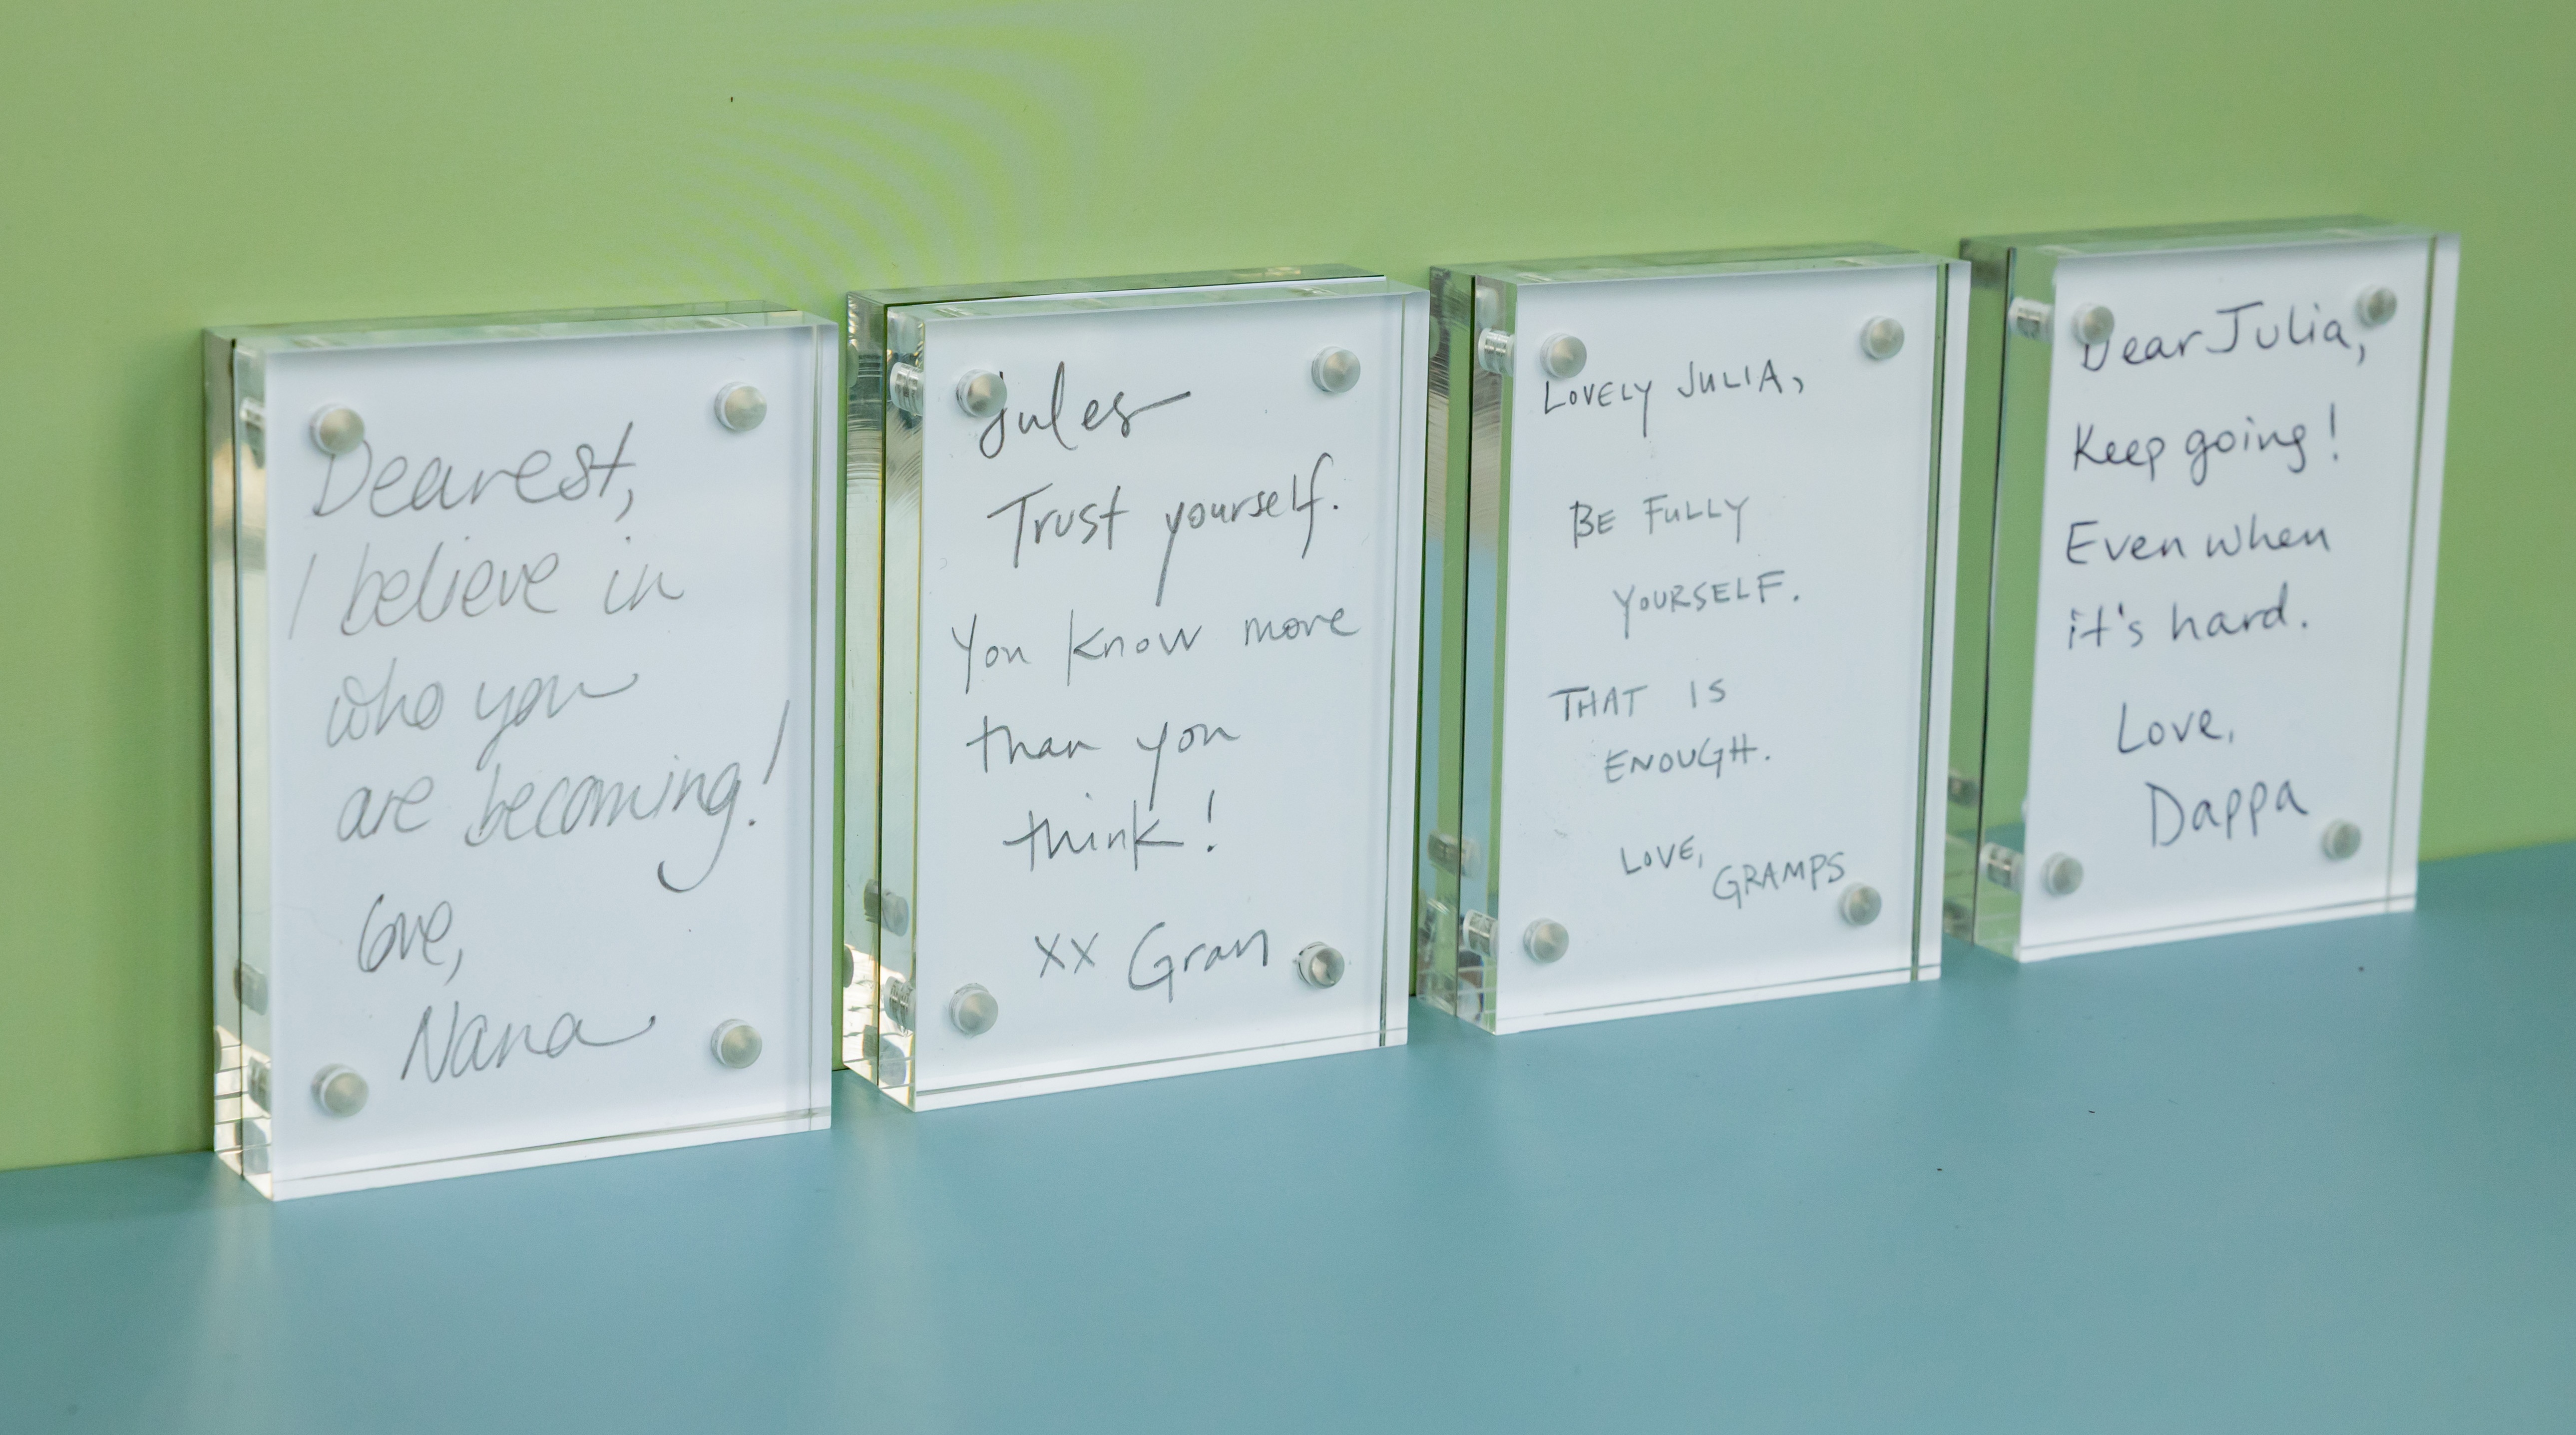 Dearest,
I believe in
who you
are becoming!
love,
Nana
Jules
Trust yourself.
You know more
than you
think!
xx Gran
LOVELY JULIA,
BE FULLY
YOURSELF.
THAT IS
ENOUGH.
LOVE,
GRAMPS
Dear Julia,
Keep going!
Even when
it's hard.
Love,
Dappa